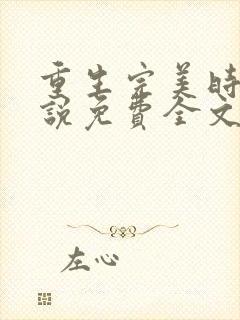 重生完美时
說免費全文
左心